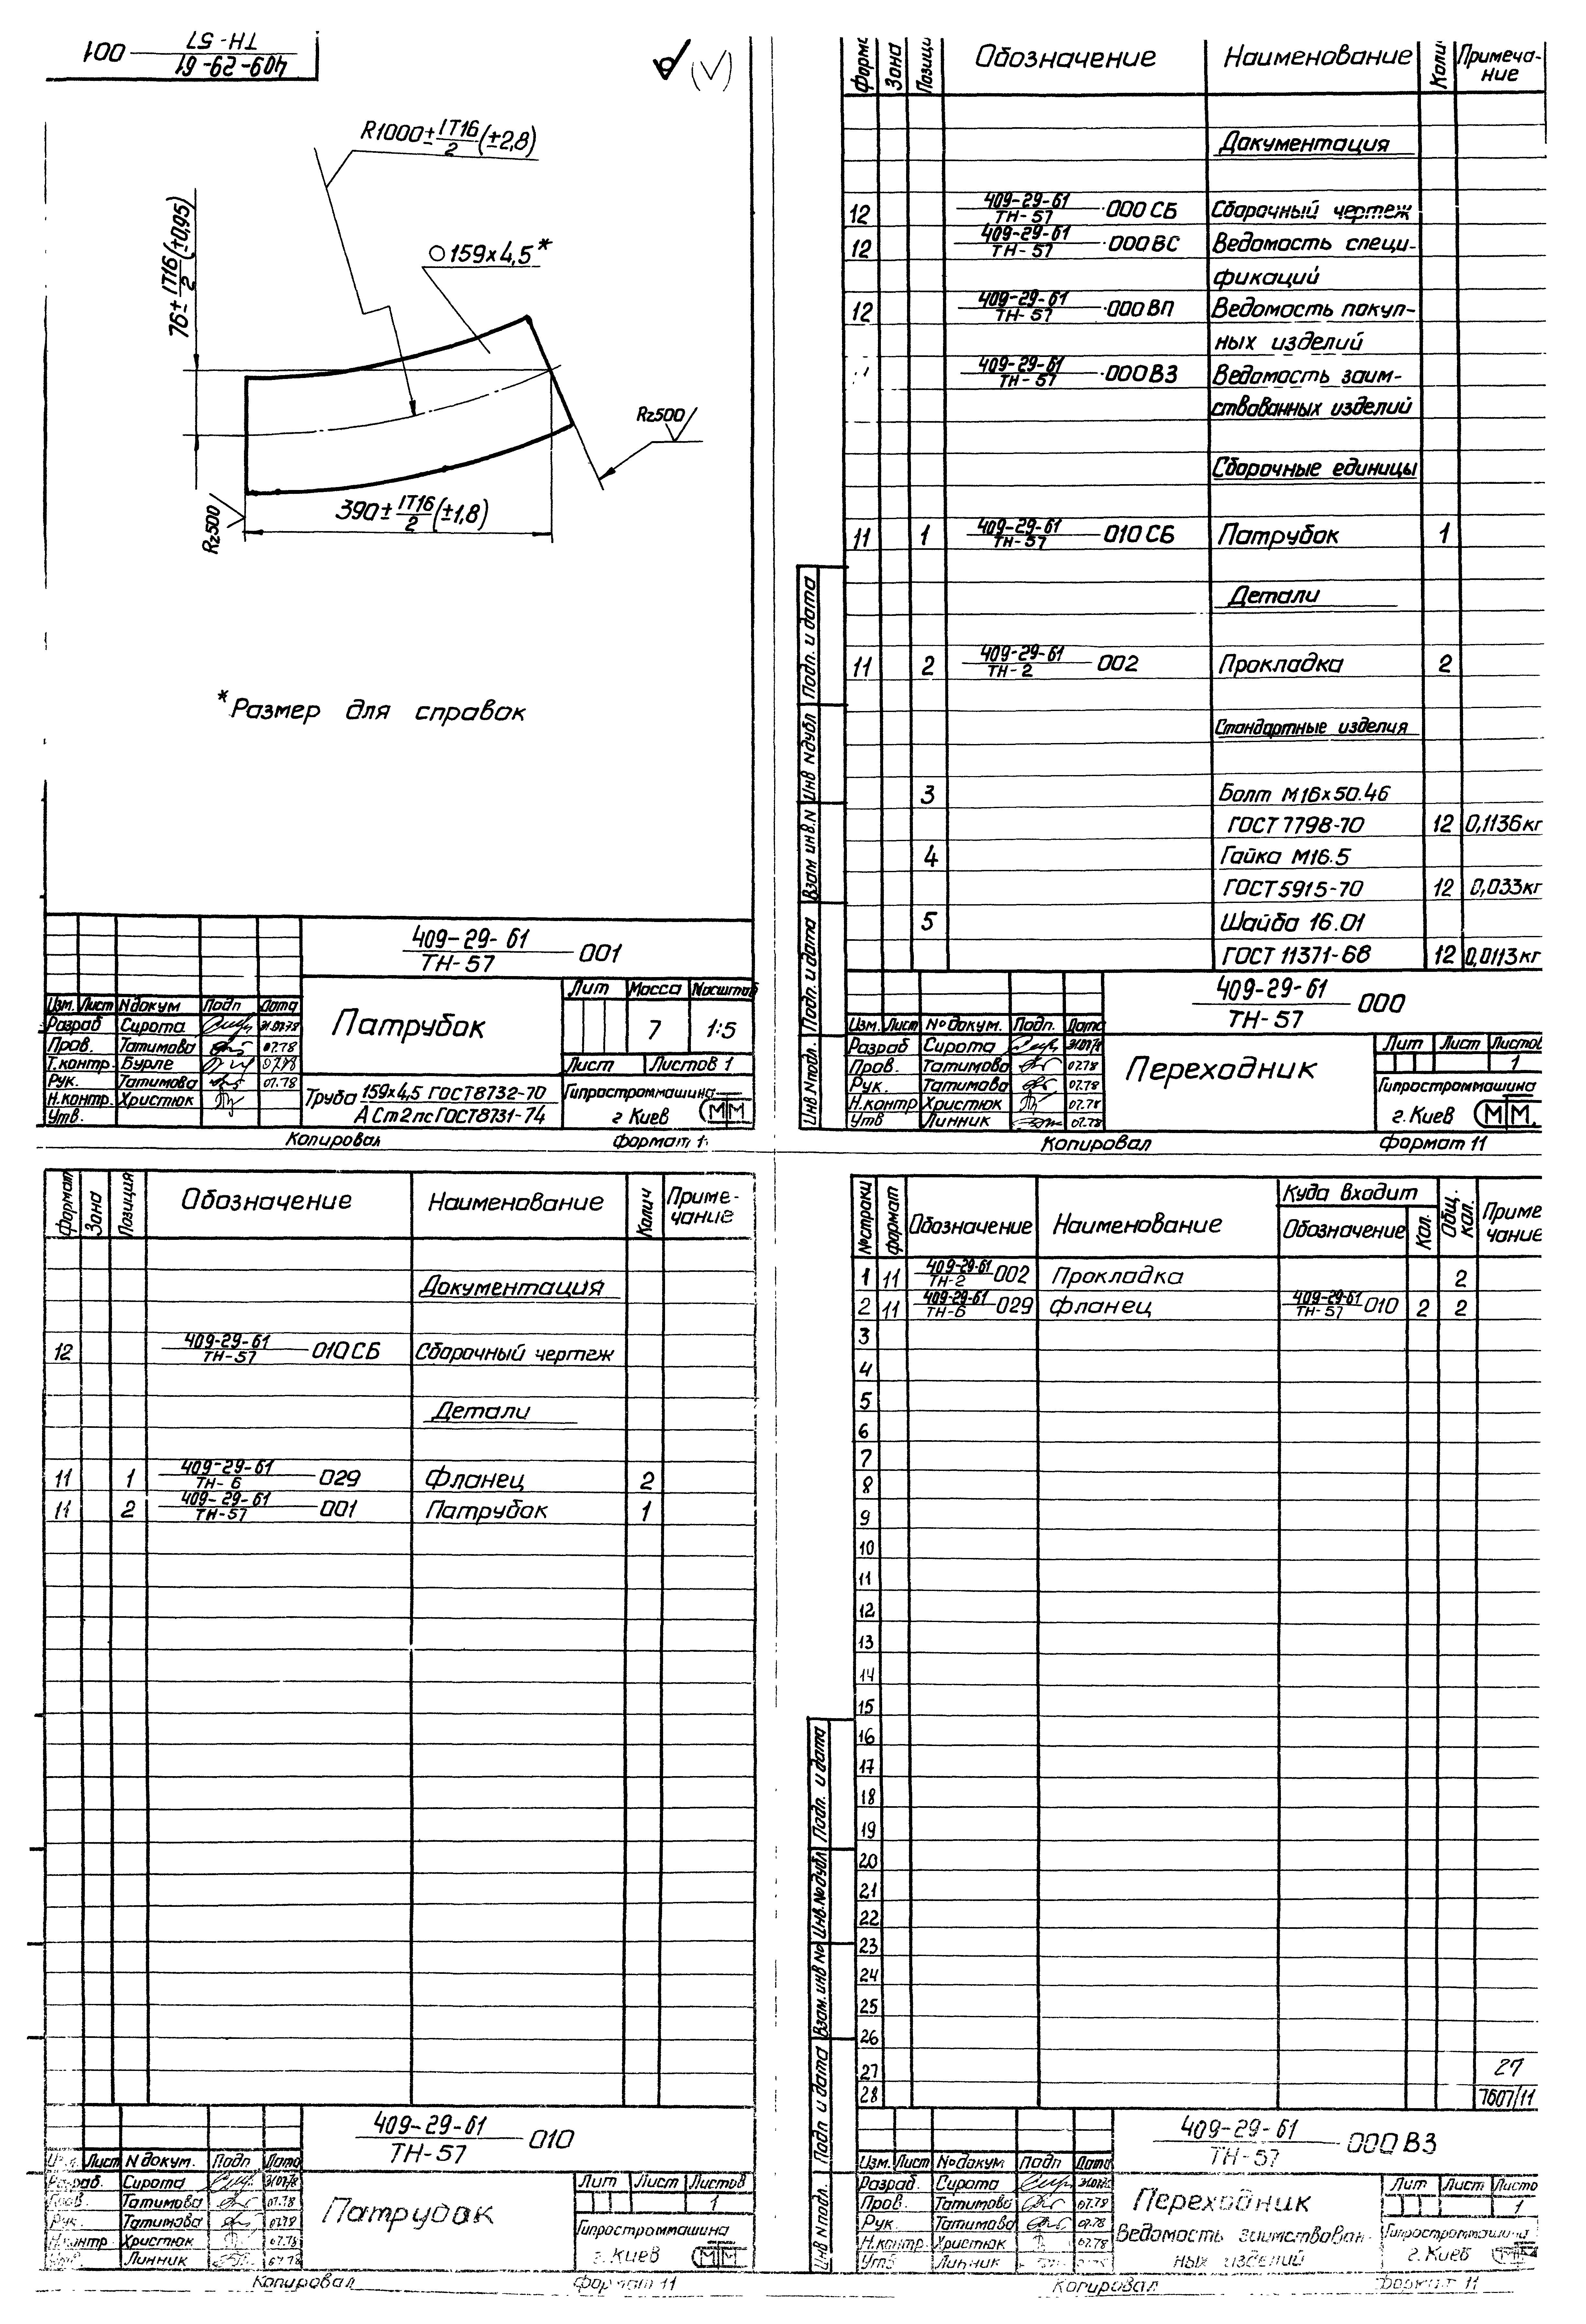 409-29-61
ТН-57
001
R1000±IT16/2(±2,8)
76±IT16/2(±0,95)
○159×4,5*
Rz500
Rz500
390±IT16/2(±1,8)
*Размер для справок
409-29-61
ТН-57
001
Изм. Лист № докум Подп Дата
Разраб Сирота 31.07.78
Пров. Татимова 07.78
Т.контр. Бурле 07.78
Рук. Татимова 07.78
Н.контр. Христюк
Утв.
Патрубок
Лит Масса Масштаб
7 1:5
Лист Листов 1
Труба 159×4,5 ГОСТ 8732-70
А Ст2пс ГОСТ 8731-74
Гипростроммашина
г. Киев
Копировал
Формат 1
Форма Зона Позици Обозначение Наименование Коли Примеча-
ние
Документация
12 409-29-61/ТН-57 000 СБ Сборочный чертеж
12 409-29-61/ТН-57 000ВС Ведомость специ-
фикаций
12 409-29-61/ТН-57 000ВП Ведомость покуп-
ных изделий
409-29-61/ТН-57 000ВЗ Ведомость заим-
ствованных изделий
Сборочные единицы
11 1 409-29-61/ТН-57 010 СБ Патрубок 1
Детали
11 2 409-29-61/ТН-2 002 Прокладка 2
Стандартные изделия
3 Болт М16×50.46
ГОСТ 7798-70 12 0,1136кг
4 Гайка М16.5
ГОСТ 5915-70 12 0,033кг
5 Шайба 16.01
ГОСТ 11371-68 12 0,0113кг
Подп. и дата
Инв № дубл
Взам инв. №
Подп. и дата
Инв № подл.
409-29-61
ТН-57
000
Изм. Лист № докум. Подп. Дата
Разраб Сирота 31.07.78
Пров. Татимова 07.78
Рук. Татимова 07.78
Н.контр Христюк 07.78
Утв Линник 07.78
Переходник
Лит Лист Листов
1
Гипростроммашина
г. Киев
Копировал
Формат 11
Формат Зона Позиция Обозначение Наименование Колич Приме-
чание
Документация
12 409-29-61/ТН-57 010СБ Сборочный чертеж
Детали
11 1 409-29-61/ТН-6 029 Фланец 2
11 2 409-29-61/ТН-57 001 Патрубок 1
409-29-61
ТН-57
010
Лист № докум. Подп Дата
Разраб. Сирота 31.07.78
Пров. Татимова 07.78
Рук. Татимова 07.78
Н.контр Христюк 07.78
Утв. Линник 07.78
Патрубок
Лит Лист Листов
1
Гипростроммашина
г. Киев
Копировал
Формат 11
№ строки Формат Обозначение Наименование Куда входит Общ. кол. Приме
чание
Обозначение Кол.
1 11 409-29-61/ТН-2 002 Прокладка 2
2 11 409-29-61/ТН-6 029 Фланец 409-29-61/ТН-57 010 2 2
3
4
5
6
7
8
9
10
11
12
13
14
15
16
17
18
19
20
21
22
23
24
25
26
27 27
28 7607/11
Подп. и дата
Инв. № дубл
Взам. инв №
Подп и дата
Инв № подл.
409-29-61
ТН-57
000 ВЗ
Изм. Лист № докум Подп Дата
Разраб. Сирота 31.07.78
Пров. Татимова 07.78
Рук. Татимова 07.78
Н.контр. Христюк 07.78
Утв Линник
Переходник
Ведомость заимствован-
ных изделий
Лит Лист Листо
1
Гипростроммашина
г. Киев
Копировал
Формат 11